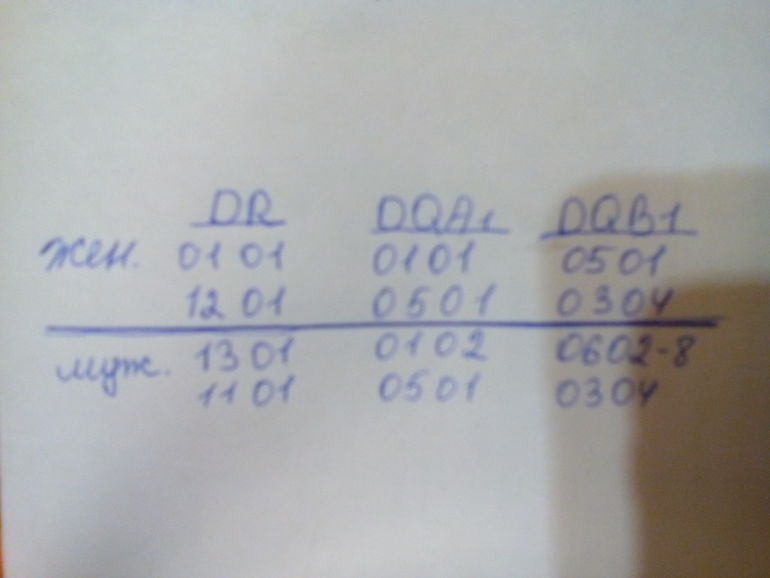 DR DQA1 DQB1
жен. 01 01 0101 0501
12 01 0501 0304
муж. 13 01 0102 0602-8
11 01 0501 0304